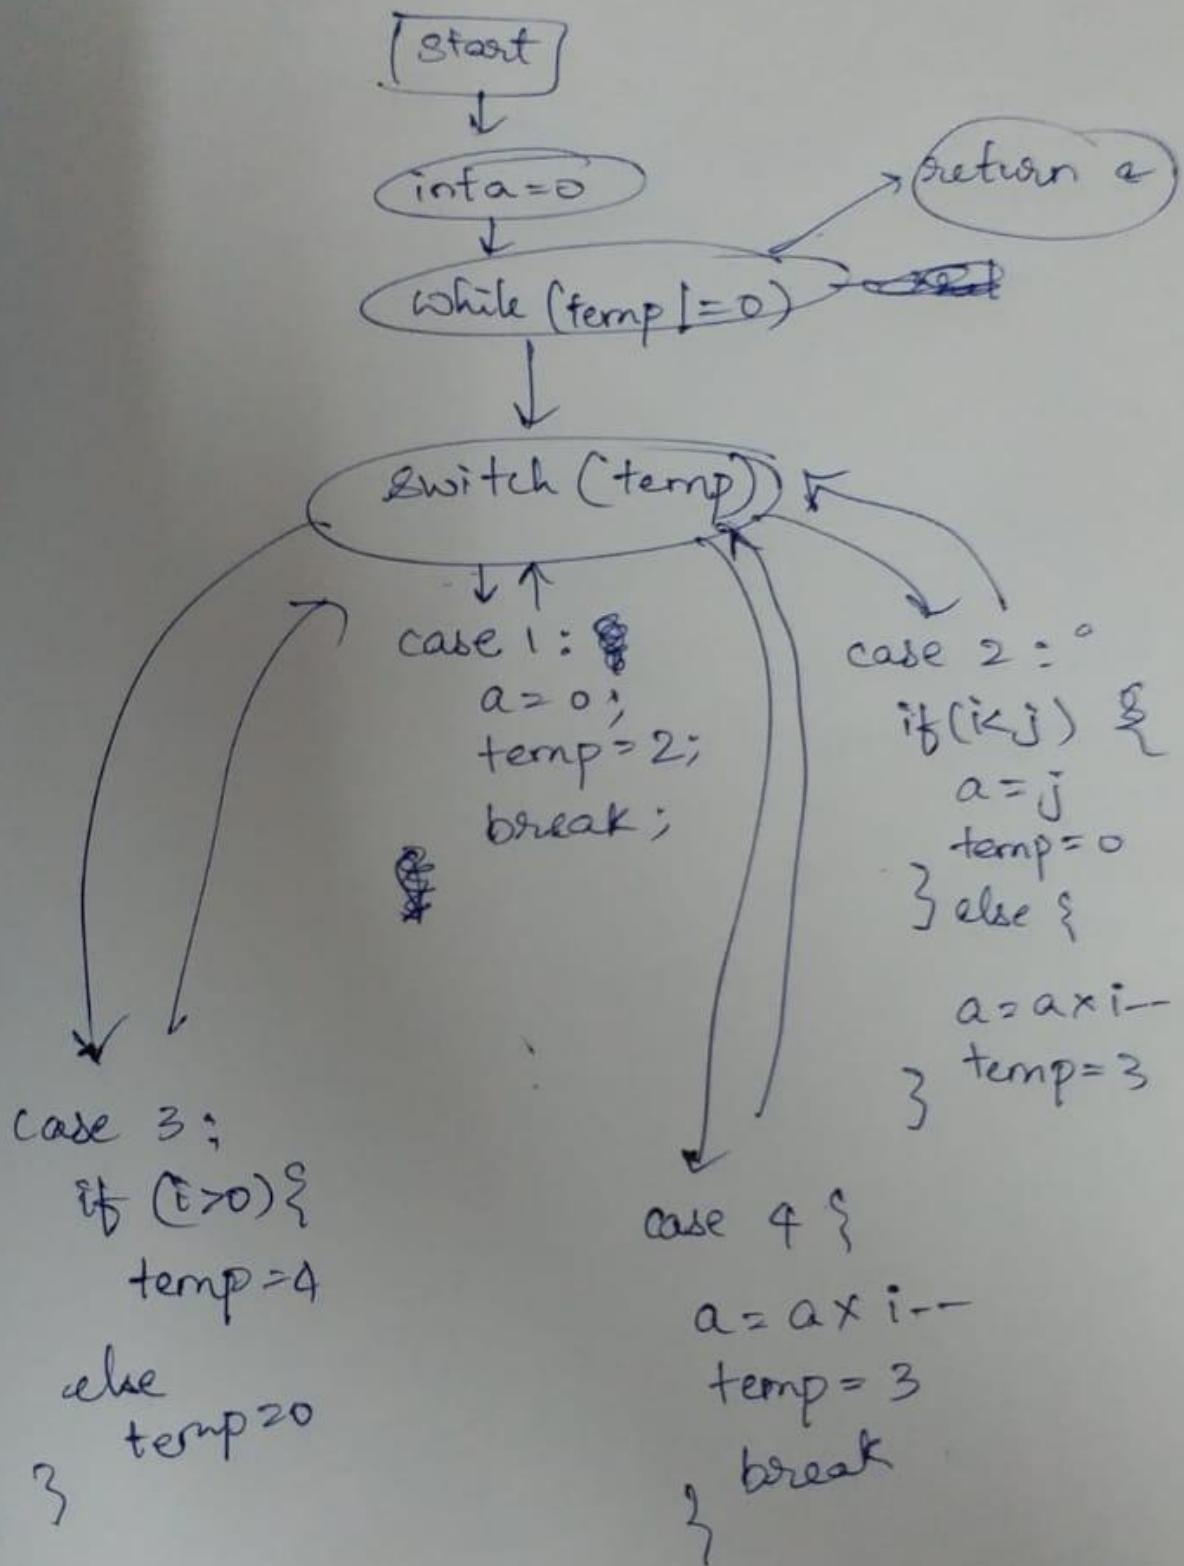 start
int a=0
return a
while (temp != 0)
switch (temp)
case 1:
a=0;
temp=2;
break;
case 2:
if(i<j) {
a=j
temp=0
} else {
a=a×i--
temp=3
}
case 3:
if (i>0){
temp=4
else
temp=0
}
case 4 {
a=a×i--
temp=3
break
}